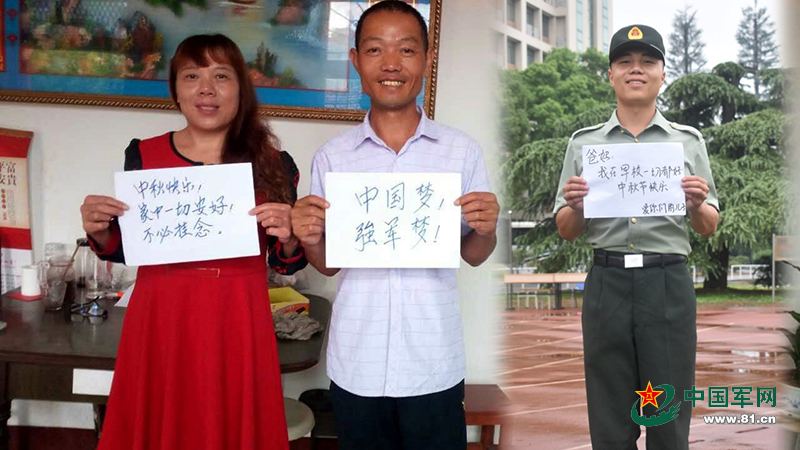 富貴
平安
中秋快乐！
家中一切安好，
不必挂念。
中国梦，
強军梦！
爸妈：
我在军校一切都好
中秋节快乐
爱你们的儿子
中国军网
www.81.cn